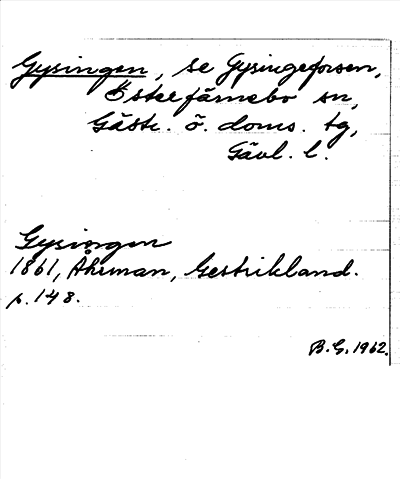 Gysingen, se Gysingeforsen,
Österfärnebo sn,
Gästr. ö. doms. tg,
Gävl. l.
Gysingen
1861, Åhrman, Gestrikland.
p. 148.
B.G. 1962.